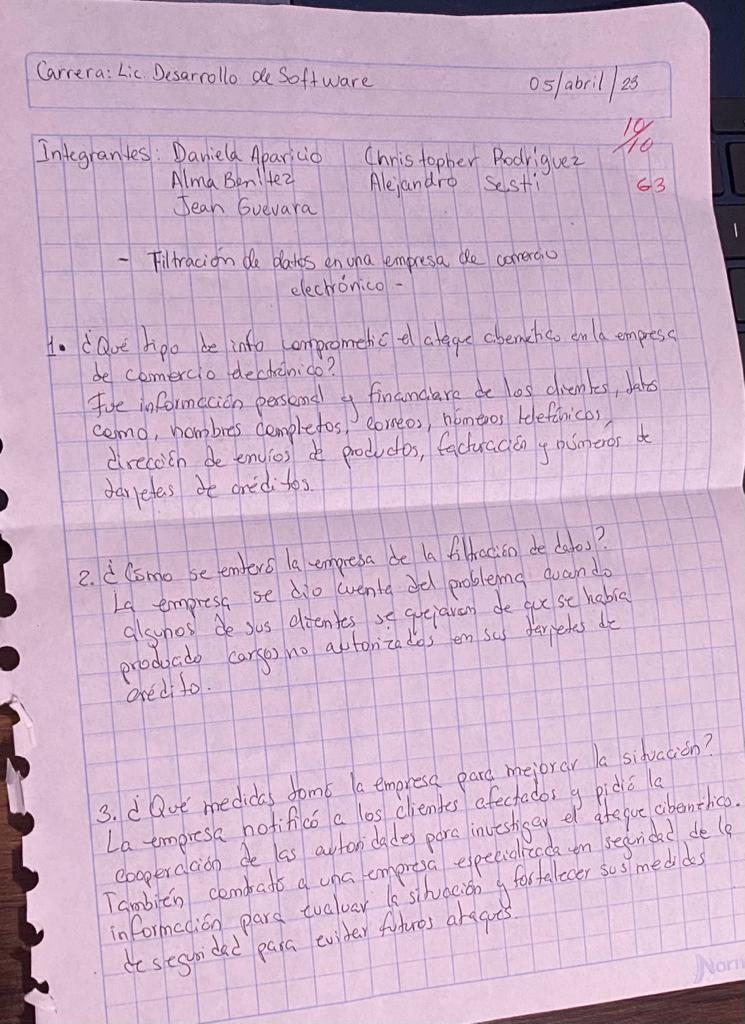 Carrera: Lic. Desarrollo de Software 05/abril/23
10/10
Integrantes: Daniela Aparicio Christopher Rodriguez
Alma Benítez Alejandro Sesti 63
Jean Guevara
- Filtración de datos en una empresa de comercio
electrónico -
1. ¿Qué tipo de info comprometió el ataque cibernético en la empresa
de comercio electrónico?
Fue información personal y financiara de los clientes, datos
como, nombres completos, correos, números telefónicos,
dirección de envíos de productos, facturación y números de
tarjetas de créditos.
2. ¿Cómo se enteró la empresa de la filtración de datos?
La empresa se dio cuenta del problema cuando
algunos de sus clientes se quejaron de que se había
producido cargos no autorizados en sus tarjetas de
crédito.
3. ¿Qué medidas tomó la empresa para mejorar la situación?
La empresa notificó a los clientes afectados y pidió la
cooperación de las autoridades para investigar el ataque cibernético.
También contrató a una empresa especializada en seguridad de la
información para evaluar la situación y fortalecer sus medidas
de seguridad para evitar futuros ataques.
Norm